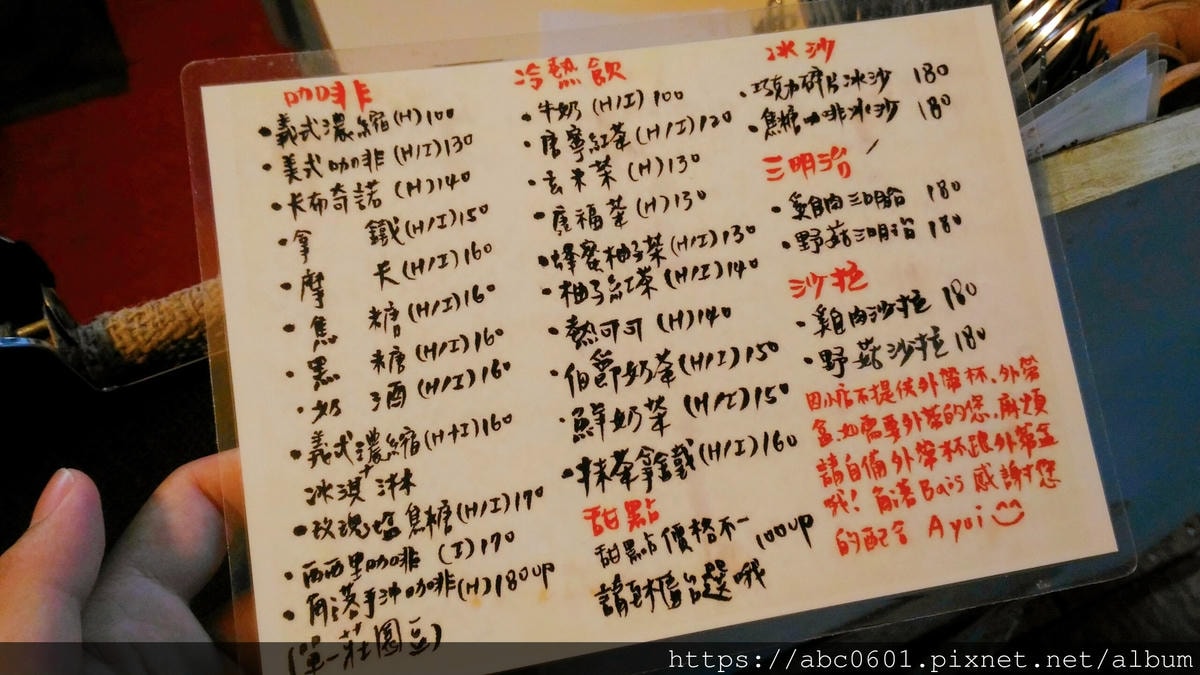 咖啡
•義式濃縮(H)100
•美式咖啡(H/I)130
•卡布奇諾(H)140
•拿 鐵(H/I)150
•摩 卡(H/I)160
•焦 糖(H/I)160
•黑 糖(H/I)160
•奶 酒(H/I)160
•義式濃縮(H+I)160
+
冰淇淋
•玫瑰塩焦糖(H/I)170
•西西里咖啡(I)170
•角落手沖咖啡(H)180up
(單一莊園豆)
冷熱飲
•牛奶(H/I)100
•唐寧紅茶(H/I)120
•玄米茶(H)130
•唐福茶(H)130
•蜂蜜柚子茶(H/I)130
•柚子紅茶(H/I)140
•熱可可(H)140
•伯爵奶茶(H/I)150
•鮮奶茶(H/I)150
•抹茶拿鐵(H/I)160
甜點
甜點價格不一 100up
請至櫃台選哦
冰沙
•巧克力碎片冰沙 180
•焦糖咖啡冰沙 180
三明治
•雞肉三明治 180
•野菇三明治 180
沙拉
•雞肉沙拉 180
•野菇沙拉 180
因小店不提供外帶杯、外帶
盒，如需要外帶的您，麻煩
請自備外帶杯跟外帶盒
哦！角落Bais感謝您
的配合 Ayui
https://abc0601.pixnet.net/album